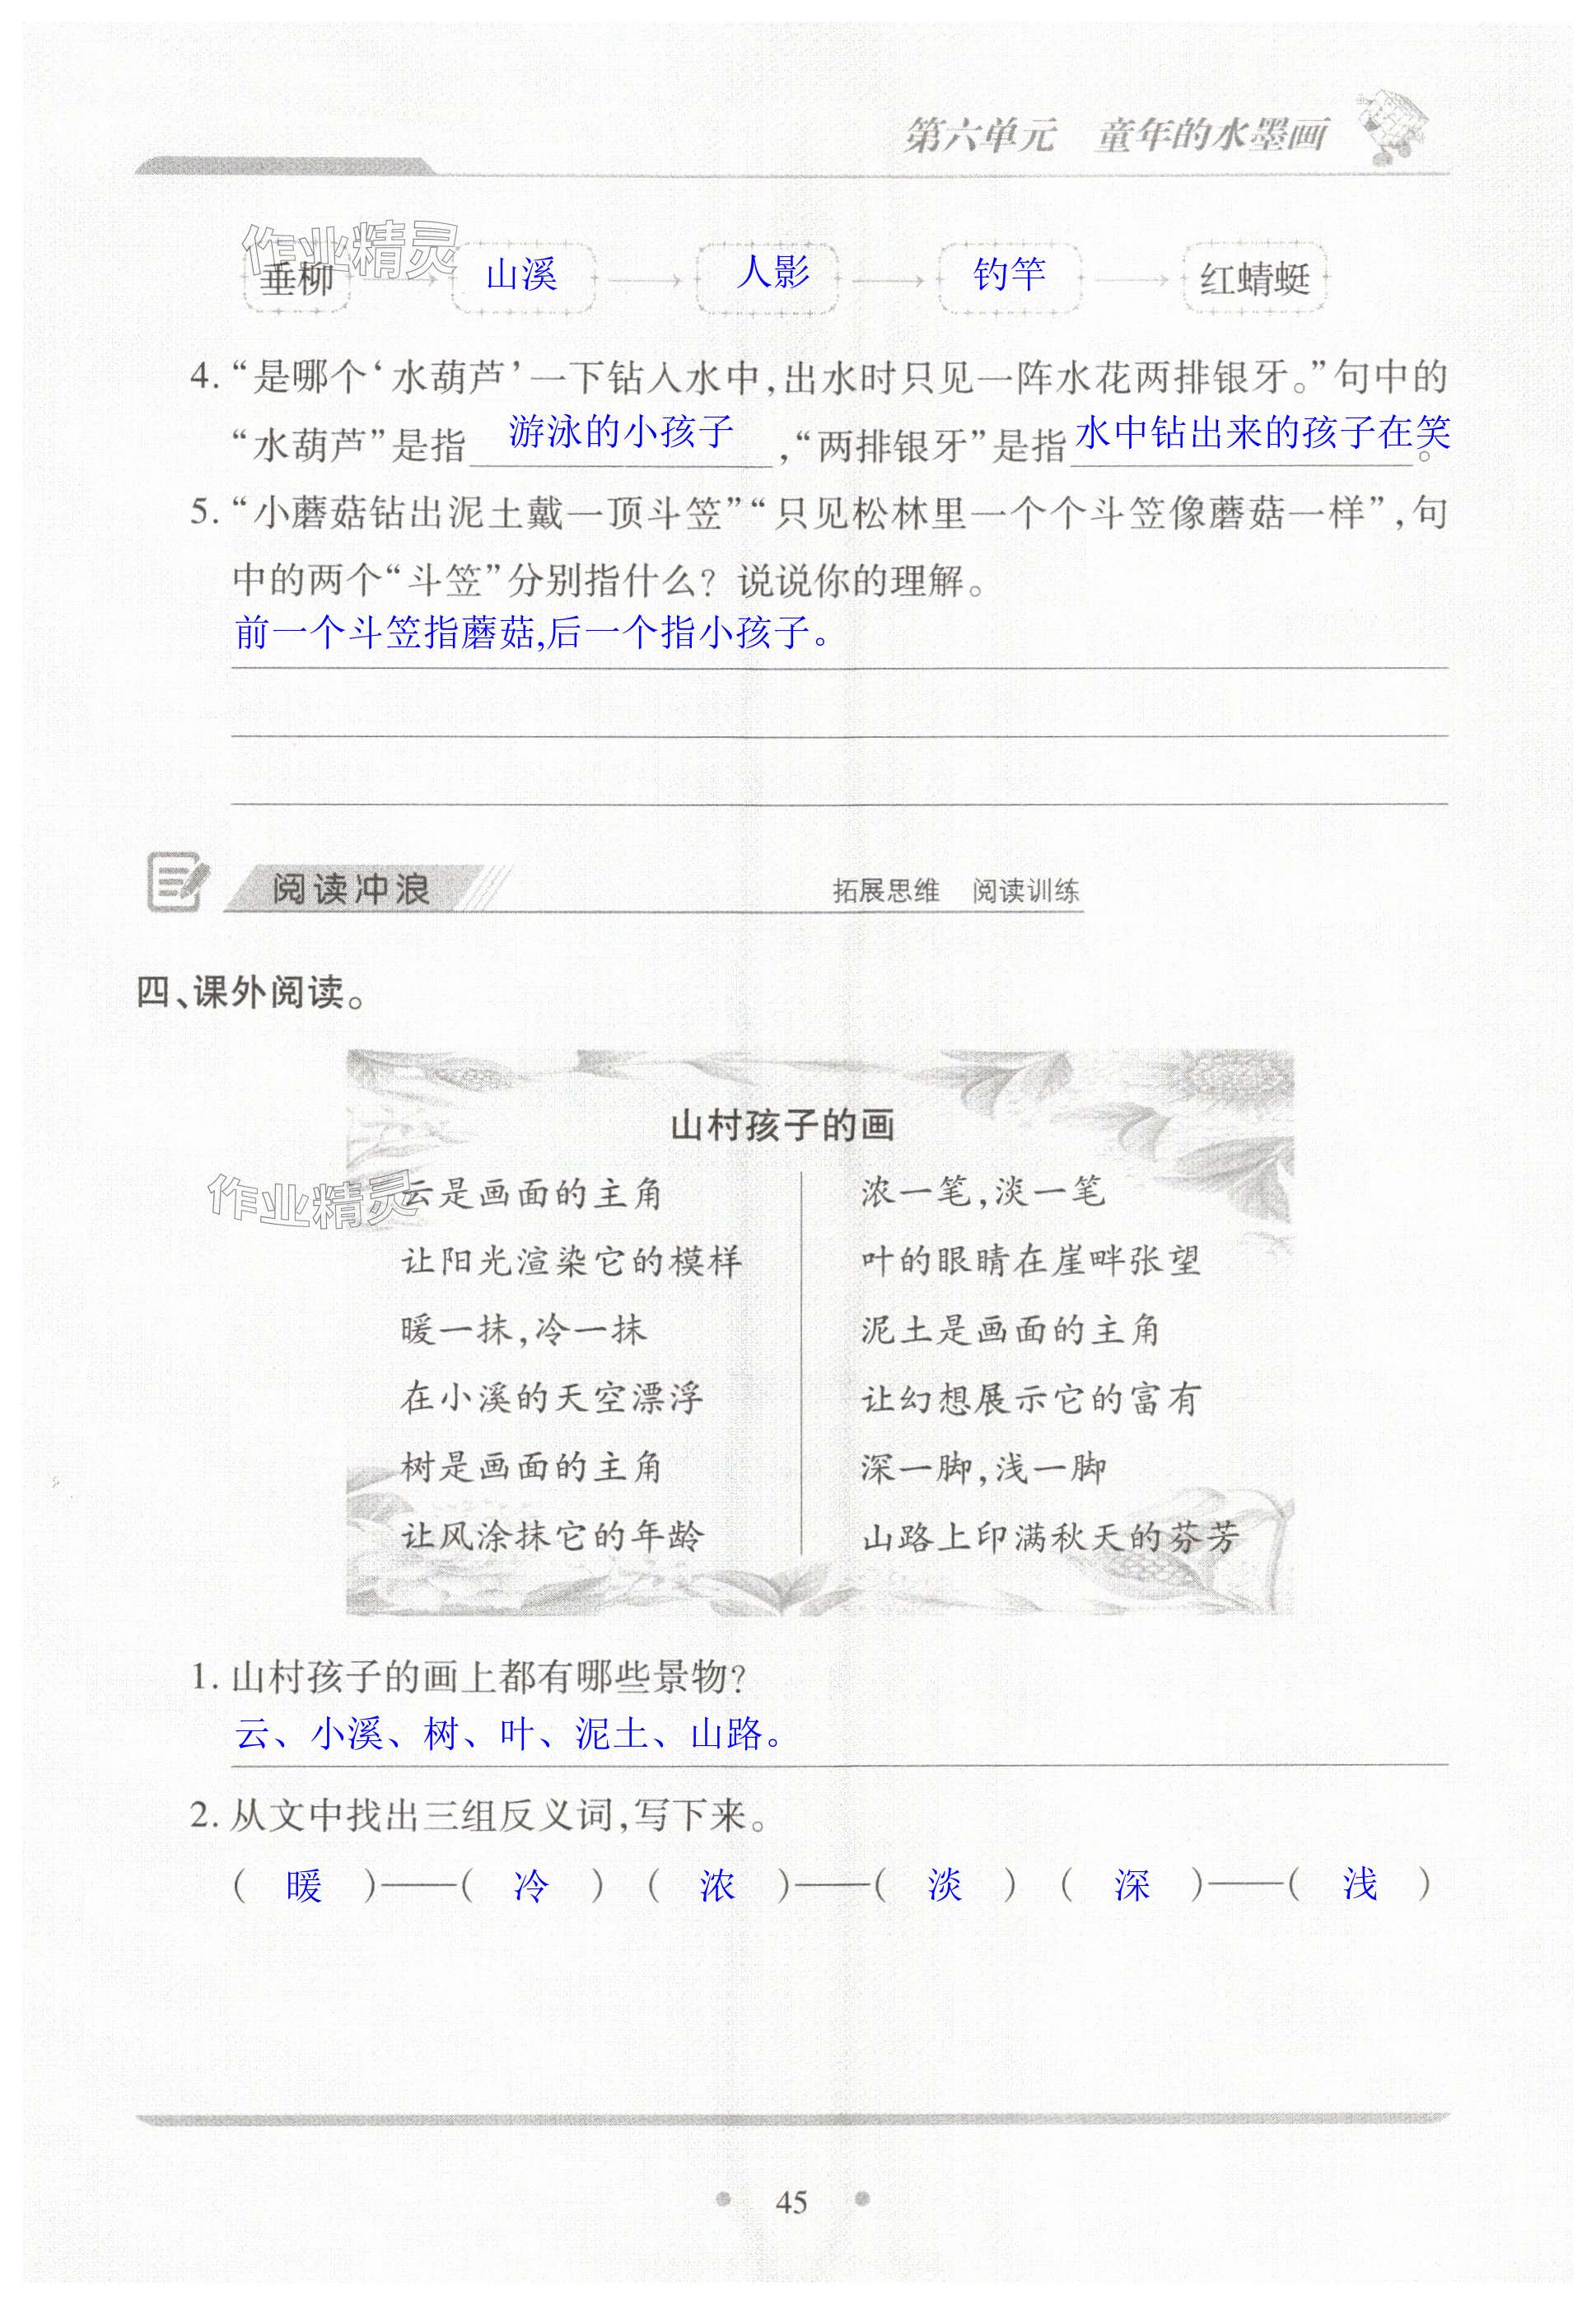 第六单元 童年的水墨画
作业精灵
垂柳 山溪 人影 钓竿 红蜻蜓
4. “是哪个‘水葫芦’一下钻入水中,出水时只见一阵水花两排银牙。”句中的
“水葫芦”是指 游泳的小孩子 ,“两排银牙”是指 水中钻出来的孩子在笑 。
5. “小蘑菇钻出泥土戴一顶斗笠”“只见松林里一个个斗笠像蘑菇一样”,句
中的两个“斗笠”分别指什么? 说说你的理解。
前一个斗笠指蘑菇,后一个指小孩子。
阅读冲浪 拓展思维 阅读训练
四、课外阅读。
山村孩子的画
作业精灵
云是画面的主角
让阳光渲染它的模样
暖一抹,冷一抹
在小溪的天空漂浮
树是画面的主角
让风涂抹它的年龄
浓一笔,淡一笔
叶的眼睛在崖畔张望
泥土是画面的主角
让幻想展示它的富有
深一脚,浅一脚
山路上印满秋天的芬芳
1. 山村孩子的画上都有哪些景物?
云、小溪、树、叶、泥土、山路。
2. 从文中找出三组反义词,写下来。
( 暖 )——( 冷 ) ( 浓 )——( 淡 ) ( 深 )——( 浅 )
45